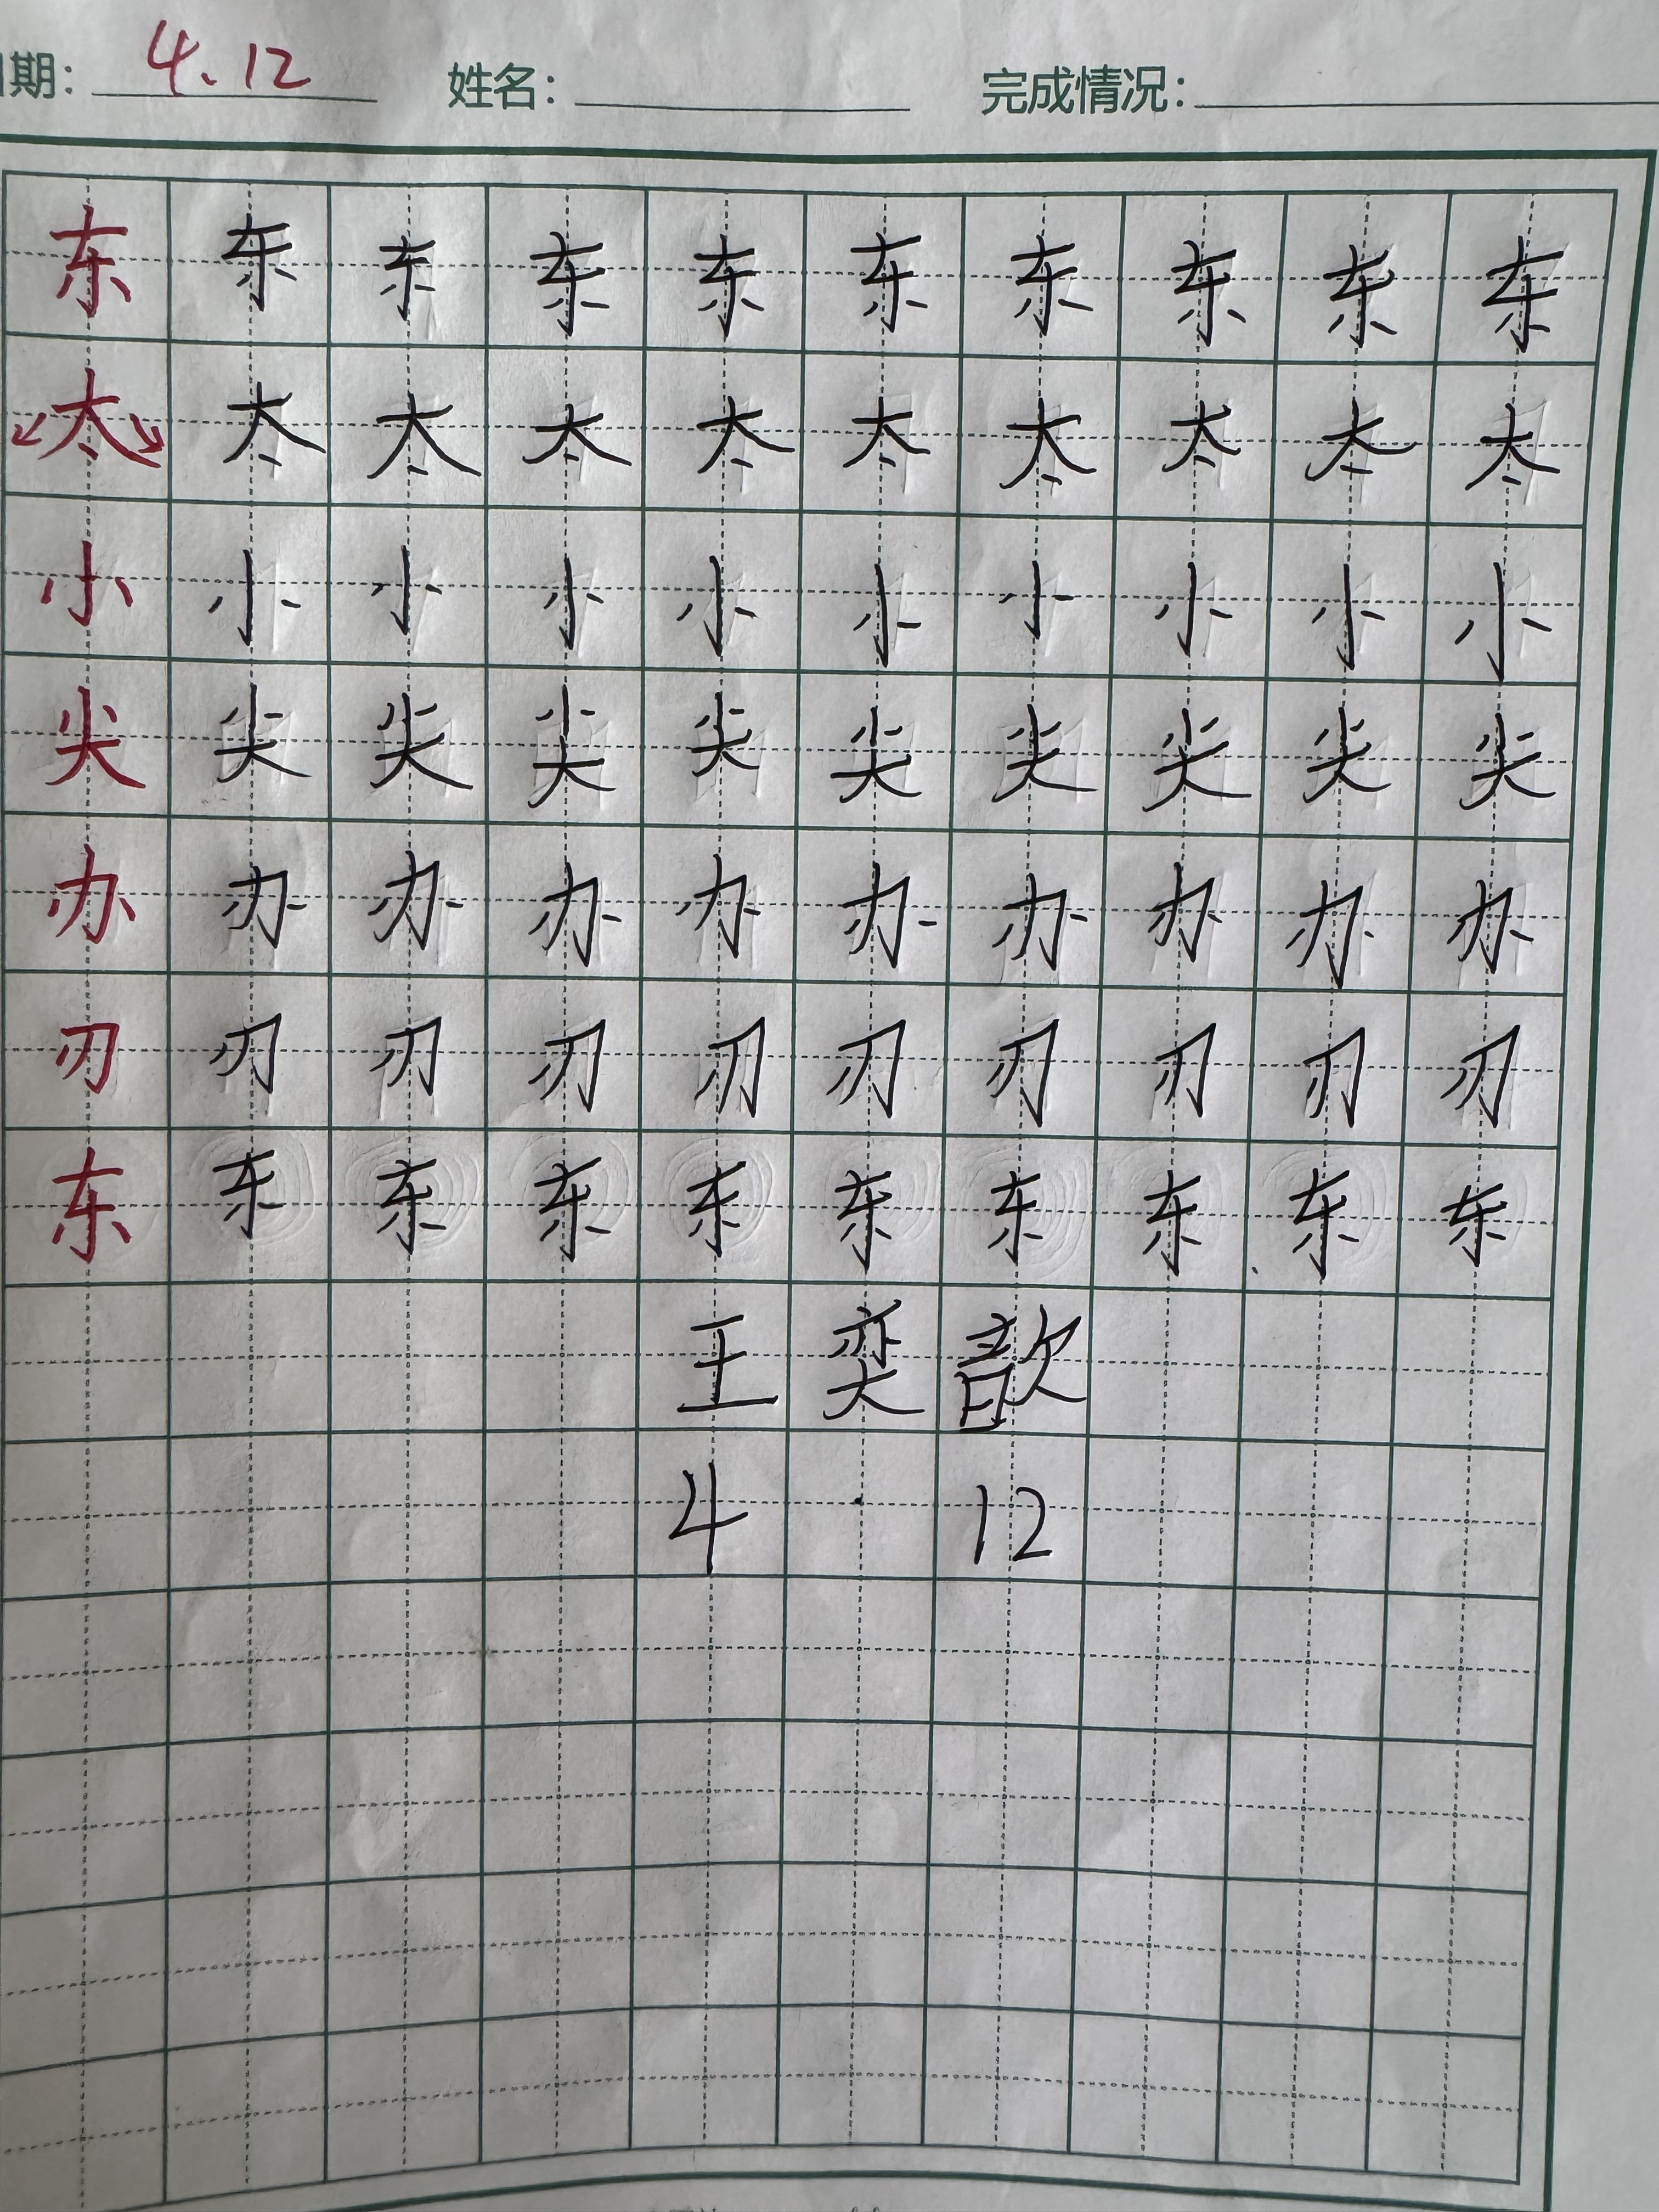 期: 4.12 姓名: 完成情况:
东 东 东 东 东 东 东 东 东 东
太 太 太 太 太 太 太 太 太 太
小 小 小 小 小 小 小 小 小 小
尖 尖 尖 尖 尖 尖 尖 尖 尖 尖
办 办 办 办 办 办 办 办 办 办
刃 刃 刃 刃 刃 刃 刃 刃 刃 刃
东 东 东 东 东 东 东 东 东 东
王 奕 歆
4 · 12